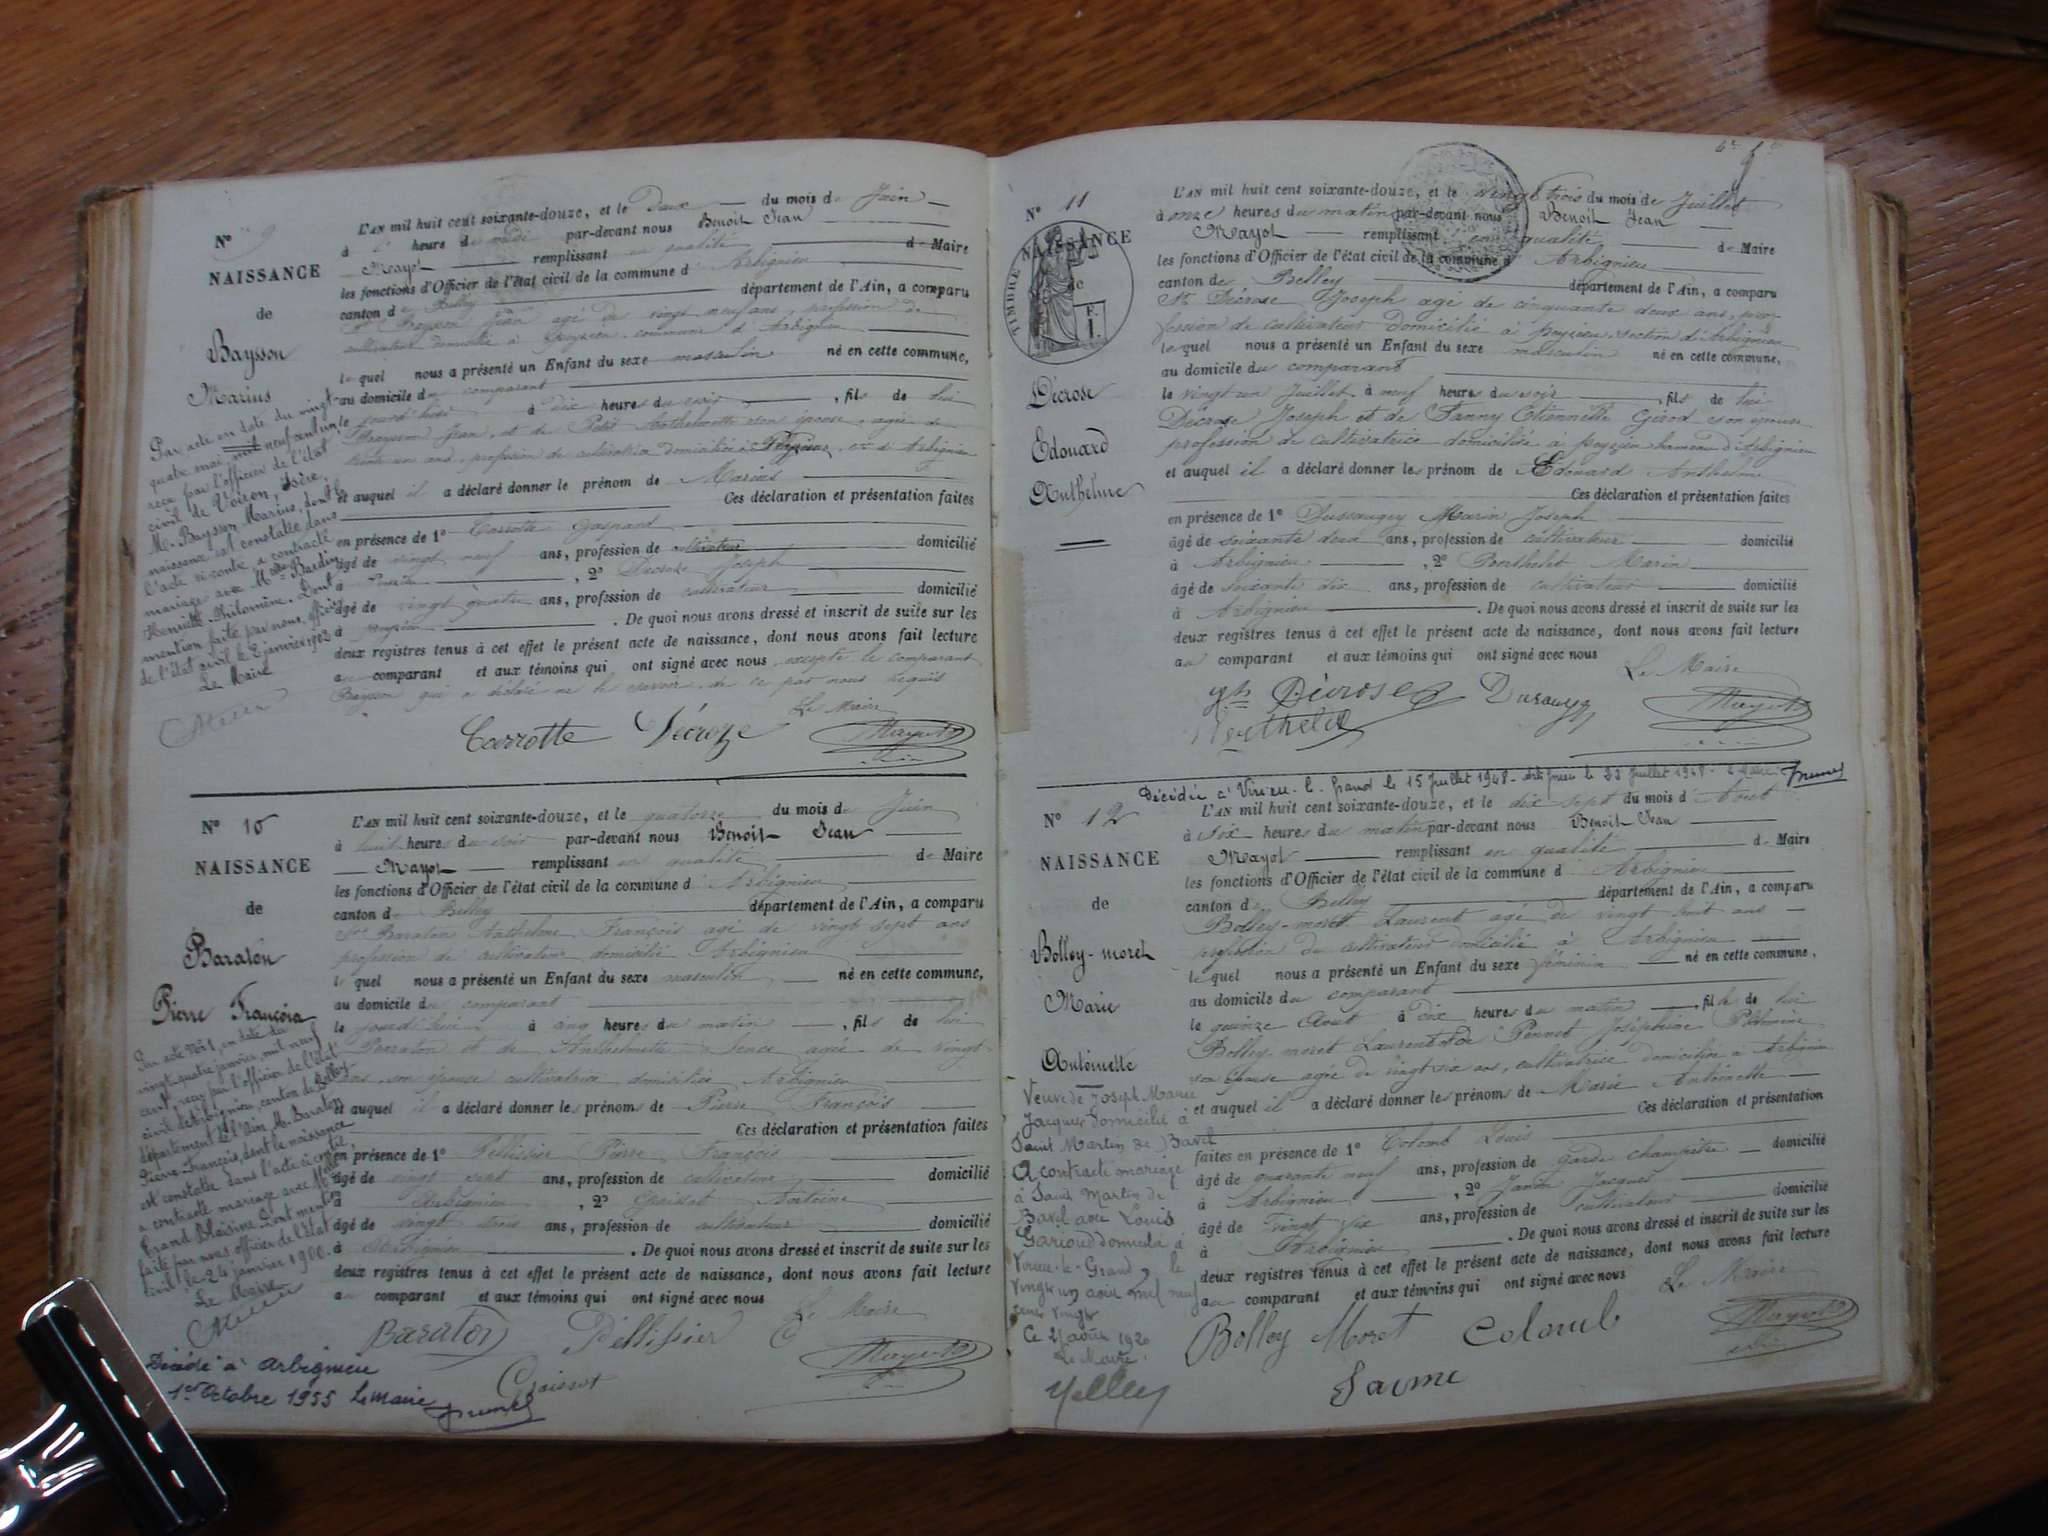 N° 9
NAISSANCE
de
Baysson
Marius
Par acte en date du vingt
quatre mai mil neuf cent un
reçu par l'officier de l'état
civil de Voiron, Isère,
M. Baysson Marius, dont la
naissance est constatée dans
l'acte ci-contre, a contracté
mariage avec Melle Bardin
Henriette Philomène. Dont
mention faite par nous, officier
de l'état civil le 2 janvier 1902
Le Maire
L'AN mil huit cent soixante-douze, et le Deux du mois de Juin
à heure de par-devant nous Benoit Jean
Mayot remplissant en qualité de Maire
les fonctions d'Officier de l'état civil de la commune d'Arbignieu
canton de Belley département de l'Ain, a comparu
Baysson Jean agé de vingt neuf ans, profession de
cultivateur domicilié à Peyzieu, commune d'Arbignieu
lequel nous a présenté un Enfant du sexe masculin né en cette commune,
au domicile du comparant
à dix heures du , fils de lui
Baysson Jean, et de Petit Anthelmette son épouse, agée de
trente un ans, profession de cultivatrice domiciliée à Peyzieu, d'Arbignieu
et auquel il a déclaré donner le prénom de Marius
Ces déclaration et présentation faites
en présence de 1° Carrotte Gaspard
âgé de vingt neuf ans, profession de cultivateur domicilié
à , 2° Décroze Joseph
âgé de vingt quatre ans, profession de cultivateur domicilié
à Peyzieu . De quoi nous avons dressé et inscrit de suite sur les
deux registres tenus à cet effet le présent acte de naissance, dont nous avons fait lecture
au comparant et aux témoins qui ont signé avec nous excepté le comparant
Baysson qui a déclaré ne le savoir, de ce par nous requis
Le Maire
Carrotte Décroze Mayot
N° 10
NAISSANCE
de
Baraton
Pierre François
Par acte N°1, en date du
vingt-quatre janvier mil neuf
cent, reçu par l'officier de l'état
civil d'Arbignieu, canton de Belley
département de l'Ain M. Baraton
Pierre François, dont la naissance
est constatée dans l'acte ci-contre,
a contracté mariage avec Melle
Grand Blaisine. Dont mention
faite par nous officier de l'état
civil, le 24 janvier 1900.
Le Maire
Décédé à Arbignieu
1er Octobre 1955 Le Maire
L'AN mil huit cent soixante-douze, et le quatorze du mois de Juin
à huit heures du soir par-devant nous Benoit Jean
Mayot remplissant en qualité de Maire
les fonctions d'Officier de l'état civil de la commune d'Arbignieu
canton de Belley département de l'Ain, a comparu
Sr Baraton Anthelme François agé de vingt sept ans
profession de cultivateur domicilié Arbignieu
lequel nous a présenté un Enfant du sexe masculin né en cette commune,
au domicile du comparant
le jourd'hui à cinq heures du matin , fils de lui
Baraton et de Anthelmette agée de vingt
ans, son épouse cultivatrice domiciliée Arbignieu
et auquel il a déclaré donner les prénoms de Pierre François
Ces déclaration et présentation faites
en présence de 1° Pellissier Pierre François
âgé de vingt sept ans, profession de cultivateur domicilié
à Arbignieu , 2° Antoine
âgé de vingt trois ans, profession de cultivateur domicilié
à Arbignieu . De quoi nous avons dressé et inscrit de suite sur les
deux registres tenus à cet effet le présent acte de naissance, dont nous avons fait lecture
au comparant et aux témoins qui ont signé avec nous
Le Maire
Baraton Pellissier Mayot
N° 11
NAISSANCE
de
TIMBRE
Décrose
Edouard
Anthelme
L'AN mil huit cent soixante-douze, et le vingt trois du mois de Juillet
à onze heures du matin par-devant nous Benoit Jean
Mayot remplissant en qualité de Maire
les fonctions d'Officier de l'état civil de la commune d'Arbignieu
canton de Belley département de l'Ain, a comparu
Sr Décrose Joseph agé de cinquante deux ans, pro-
fession de cultivateur domicilié à Peyzieu, section d'Arbignieu
lequel nous a présenté un Enfant du sexe masculin né en cette commune,
au domicile du comparant
le vingt un Juillet à neuf heures du soir , fils de lui
Décrose Joseph et de Fanny Etiennette Girod son épouse
profession de cultivatrice domiciliée à Peyzieu hameau d'Arbignieu
et auquel il a déclaré donner les prénom de Edouard Anthelme
Ces déclaration et présentation faites
en présence de 1° Dussaugey Marin Joseph
âgé de soixante deux ans, profession de cultivateur domicilié
à Arbignieu , 2° Berthelet Marin
âgé de soixante dix ans, profession de cultivateur domicilié
à Arbignieu . De quoi nous avons dressé et inscrit de suite sur les
deux registres tenus à cet effet le présent acte de naissance, dont nous avons fait lecture
au comparant et aux témoins qui ont signé avec nous
Le Maire
Jh Décrose Mayot
Berthelet
Décédée à Virieu-le-Grand le 15 Juillet 1948 - Arbignieu le 23 Juillet 1948 - Le Maire
N° 12
NAISSANCE
de
Bolley-moret
Marie
Antoinette
Veuve de Joseph Marie
Jacquier domicilié à
Saint Martin de Bavel
A contracté mariage
à Saint Martin de
Bavel avec Louis
domicilié à
Virieu-le-Grand, le
vingt un août mil neuf
cent vingt
Ce 21 août 1920
Le Maire
L'AN mil huit cent soixante-douze, et le dix sept du mois d'Aout
à six heures du matin par-devant nous Benoit Jean
Mayot remplissant en qualité de Maire
les fonctions d'Officier de l'état civil de la commune d'Arbignieu
canton de Belley département de l'Ain, a comparu
Bolley-moret Laurent agé de vingt huit ans
profession de cultivateur domicilié à Arbignieu
lequel nous a présenté un Enfant du sexe féminin né en cette commune,
au domicile du comparant
le quinze Aout à dix heures du matin , fille de lui
Bolley moret Laurent et de Pennet Joséphine
son épouse agée de vingt six ans, cultivatrice domiciliée à Arbignieu
et auquel il a déclaré donner les prénoms de Marie Antoinette
Ces déclaration et présentation
faites en présence de 1° Colomb Louis
âgé de quarante neuf ans, profession de garde champêtre domicilié
à Arbignieu , 2° Jacques
âgé de vingt six ans, profession de cultivateur domicilié
à Arbignieu . De quoi nous avons dressé et inscrit de suite sur les
deux registres tenus à cet effet le présent acte de naissance, dont nous avons fait lecture
au comparant et aux témoins qui ont signé avec nous
Le Maire
Bolley Moret Colomb Mayot